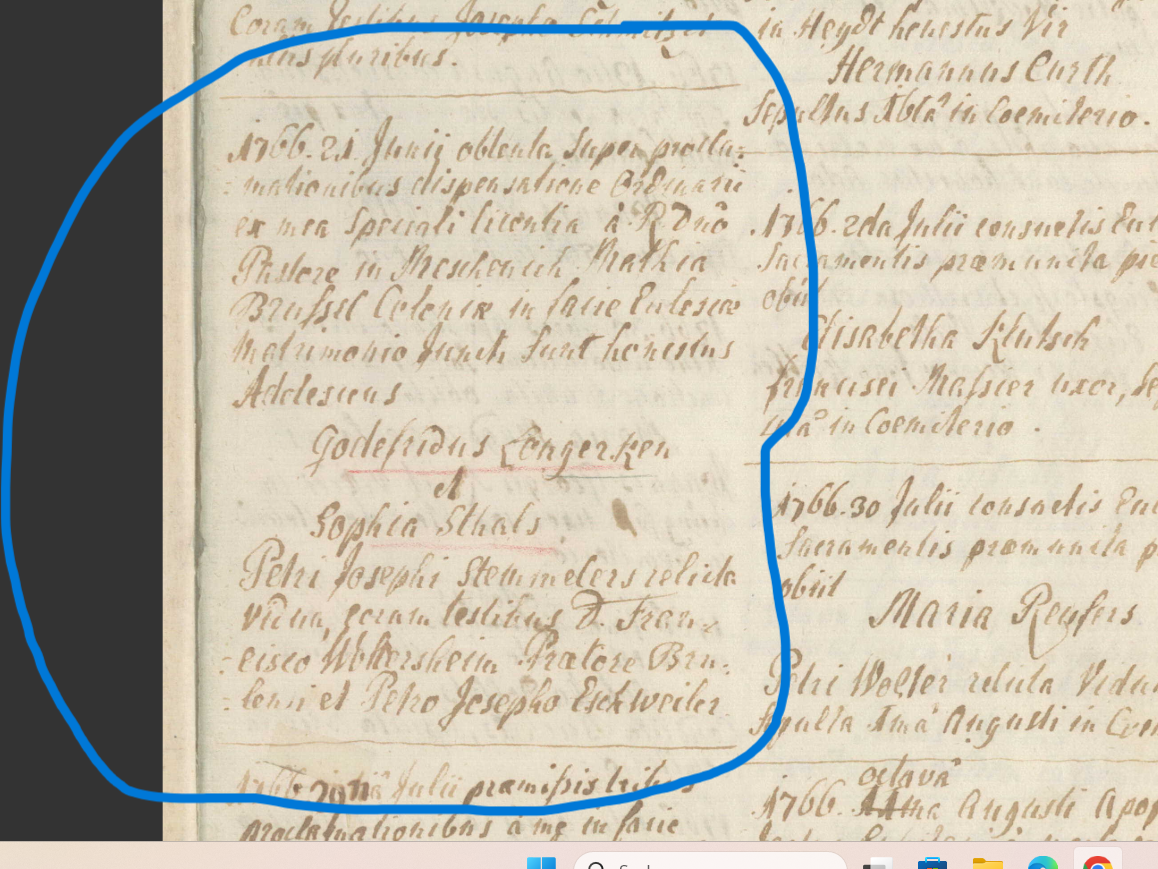 Coram testibus Josepho Schmitzer
pluribus.
1766. 21 Junij obtenta super procla-
mationibus dispensatione Ordinarii
ex mea speciali licentia à R. Dno
Pastore in Meschenich Mathia
Brussel Coloniæ in facie Ecclesiæ
Matrimonio juncti sunt honestus
Adolescens
Godefridus Longerken
et
Sophia Sthals
Petri Josephi Stemmelers relicta
vidua, coram testibus D. Fran-
cisco Woltersheim Prætore Bru-
lensi et Petro Josepho Eschweiler
Julii præmissis tribus
proclamationibus a me in facie
in Heydt honestus Vir
Hermannus Curth
sepultus in Coemiterio.
1766. 2da Julii consuetis
Sacramentis præmunita
obiit
Elisabetha Klutsch
francisci Massier uxor,
in Coemiterio.
1766. 30 Julii consuetis
Sacramentis præmunita
obiit
Maria Reyfers
Petri Wolter relicta Vidua
sepulta 1ma Augusti in
octava
1766. Augusti